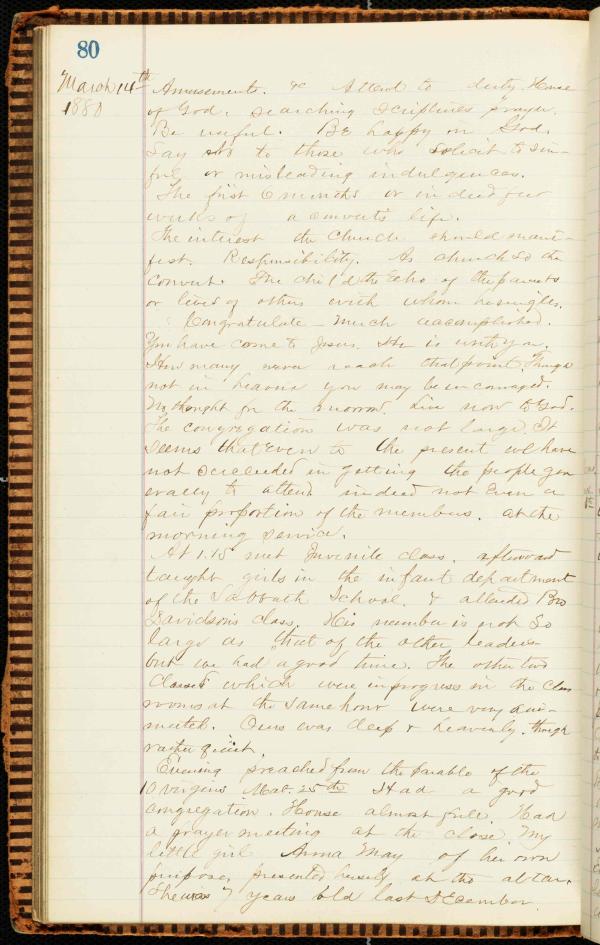 80
March 14th Amusements. & Attend to duty House
1880 of God, searching Scriptures prayer.
Be useful. Be happy in God.
Say no to those who solicit to sin-
ful or misleading indulgences.
The first 6 months or indeed few
weeks of a converts life.
The interest the Church should mani-
fest. Responsibility. As church so the
convert. The child the Echo of the parents
or lives of others with whom he mingles.
Congratulate - Much accomplished.
You have come to Jesus. He is with you.
How many never reach that point. Though
not in heaven you may be encouraged.
No thought for the morrow. Live now to God.
The congregation was not large. It
seems that even to the present we have
not succeeded in getting the people gen
erally to attend indeed not even a
fair proportion of the members. at the
morning service.
At 1.15 met Juvenile class. afterward
taught girls in the infant department
of the Sabbath School. & attended Bro
Davidson's class. His number is not so
large as that of the other leaders
but we had a good time. The other two
classes which were in progress in the class
rooms at the same hour were very ani-
mated. Ours was deep & heavenly. though
rather quiet.
Evening preached from the parable of the
10 virgins Mat. 25th Had a good
congregation. House almost full. Had
a prayer meeting at the close. My
little girl Anna May of her own
purpose, presented herself at the altar.
She was 7 years old last December.